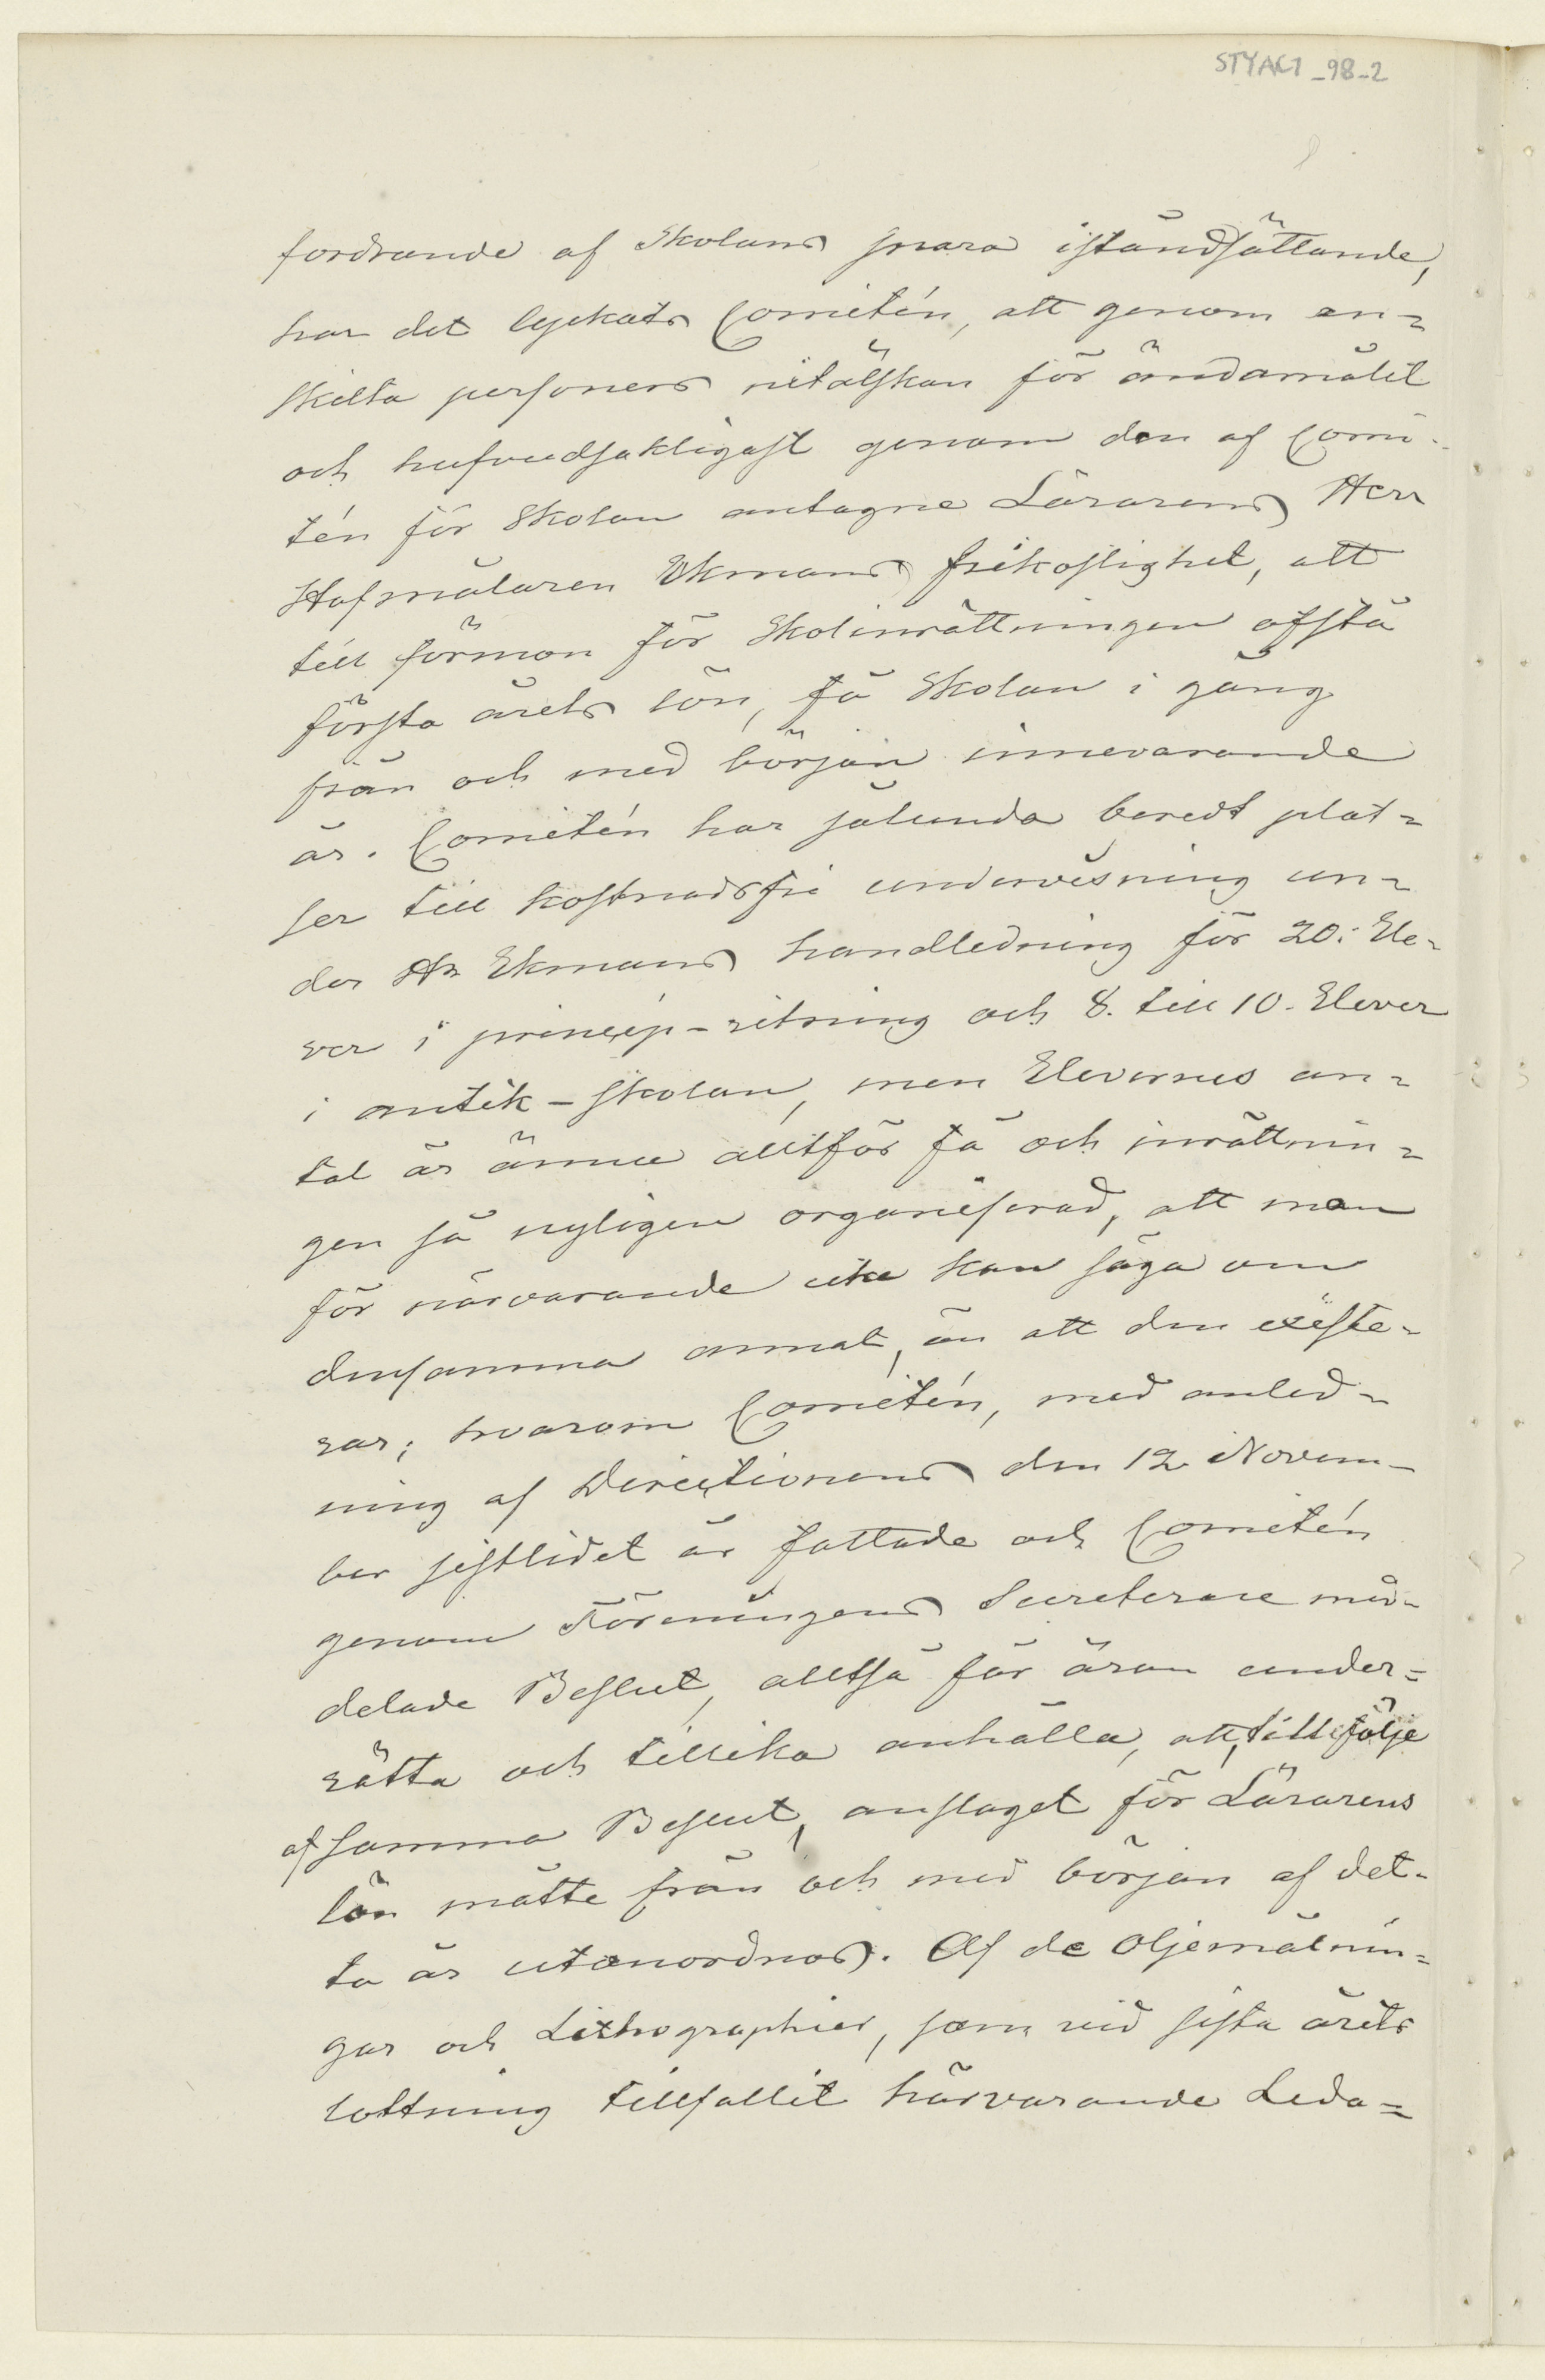 STYACT_98_2
fordrande af Skolans snara iståndsättande,
har det lyckats Comitén, att genom en=
skilta personers nitälskan för ändamålet
och hufvudsakligast genom den af Comi-
tén för Skolan antagne Lärarens Herr
Hofmålaren Ekmans frikostighet, att
till förmon för Skolinrättningen afstå
första årets lön, få Skolan i gång
från och med början innevarande
år. Comitén har sålunda beredt plat=
ser till kostnadsfri undervisning un=
der Hr Ekmans handledning för 20. Ele-
ver i princip-ritning och 8. till 10. Elever
i antik-skolan, men Elevernes an=
tal är ännu alltför få och inrättnin=
gen så nyligen organiserad, att man
för närvarande icke kan säga om
densamma annat, än att den existe-
rar; hvarom Comitén, med anled-
ning af Directionens den 12 Novem-
ber sistlidet år fattade och Comitén
genom Föreningens Secreterare med-
delade Beslut, alltså får äran under=
rätta och tillika anhålla, att, till följe
af samma Beslut, anslaget för Lärarens
lön måtte från och med början af det-
ta år utanordnas. Af de Oljemålnin=
gar och Lithographier, som vid sista årets
lottning tillfallit härvarande Leda=